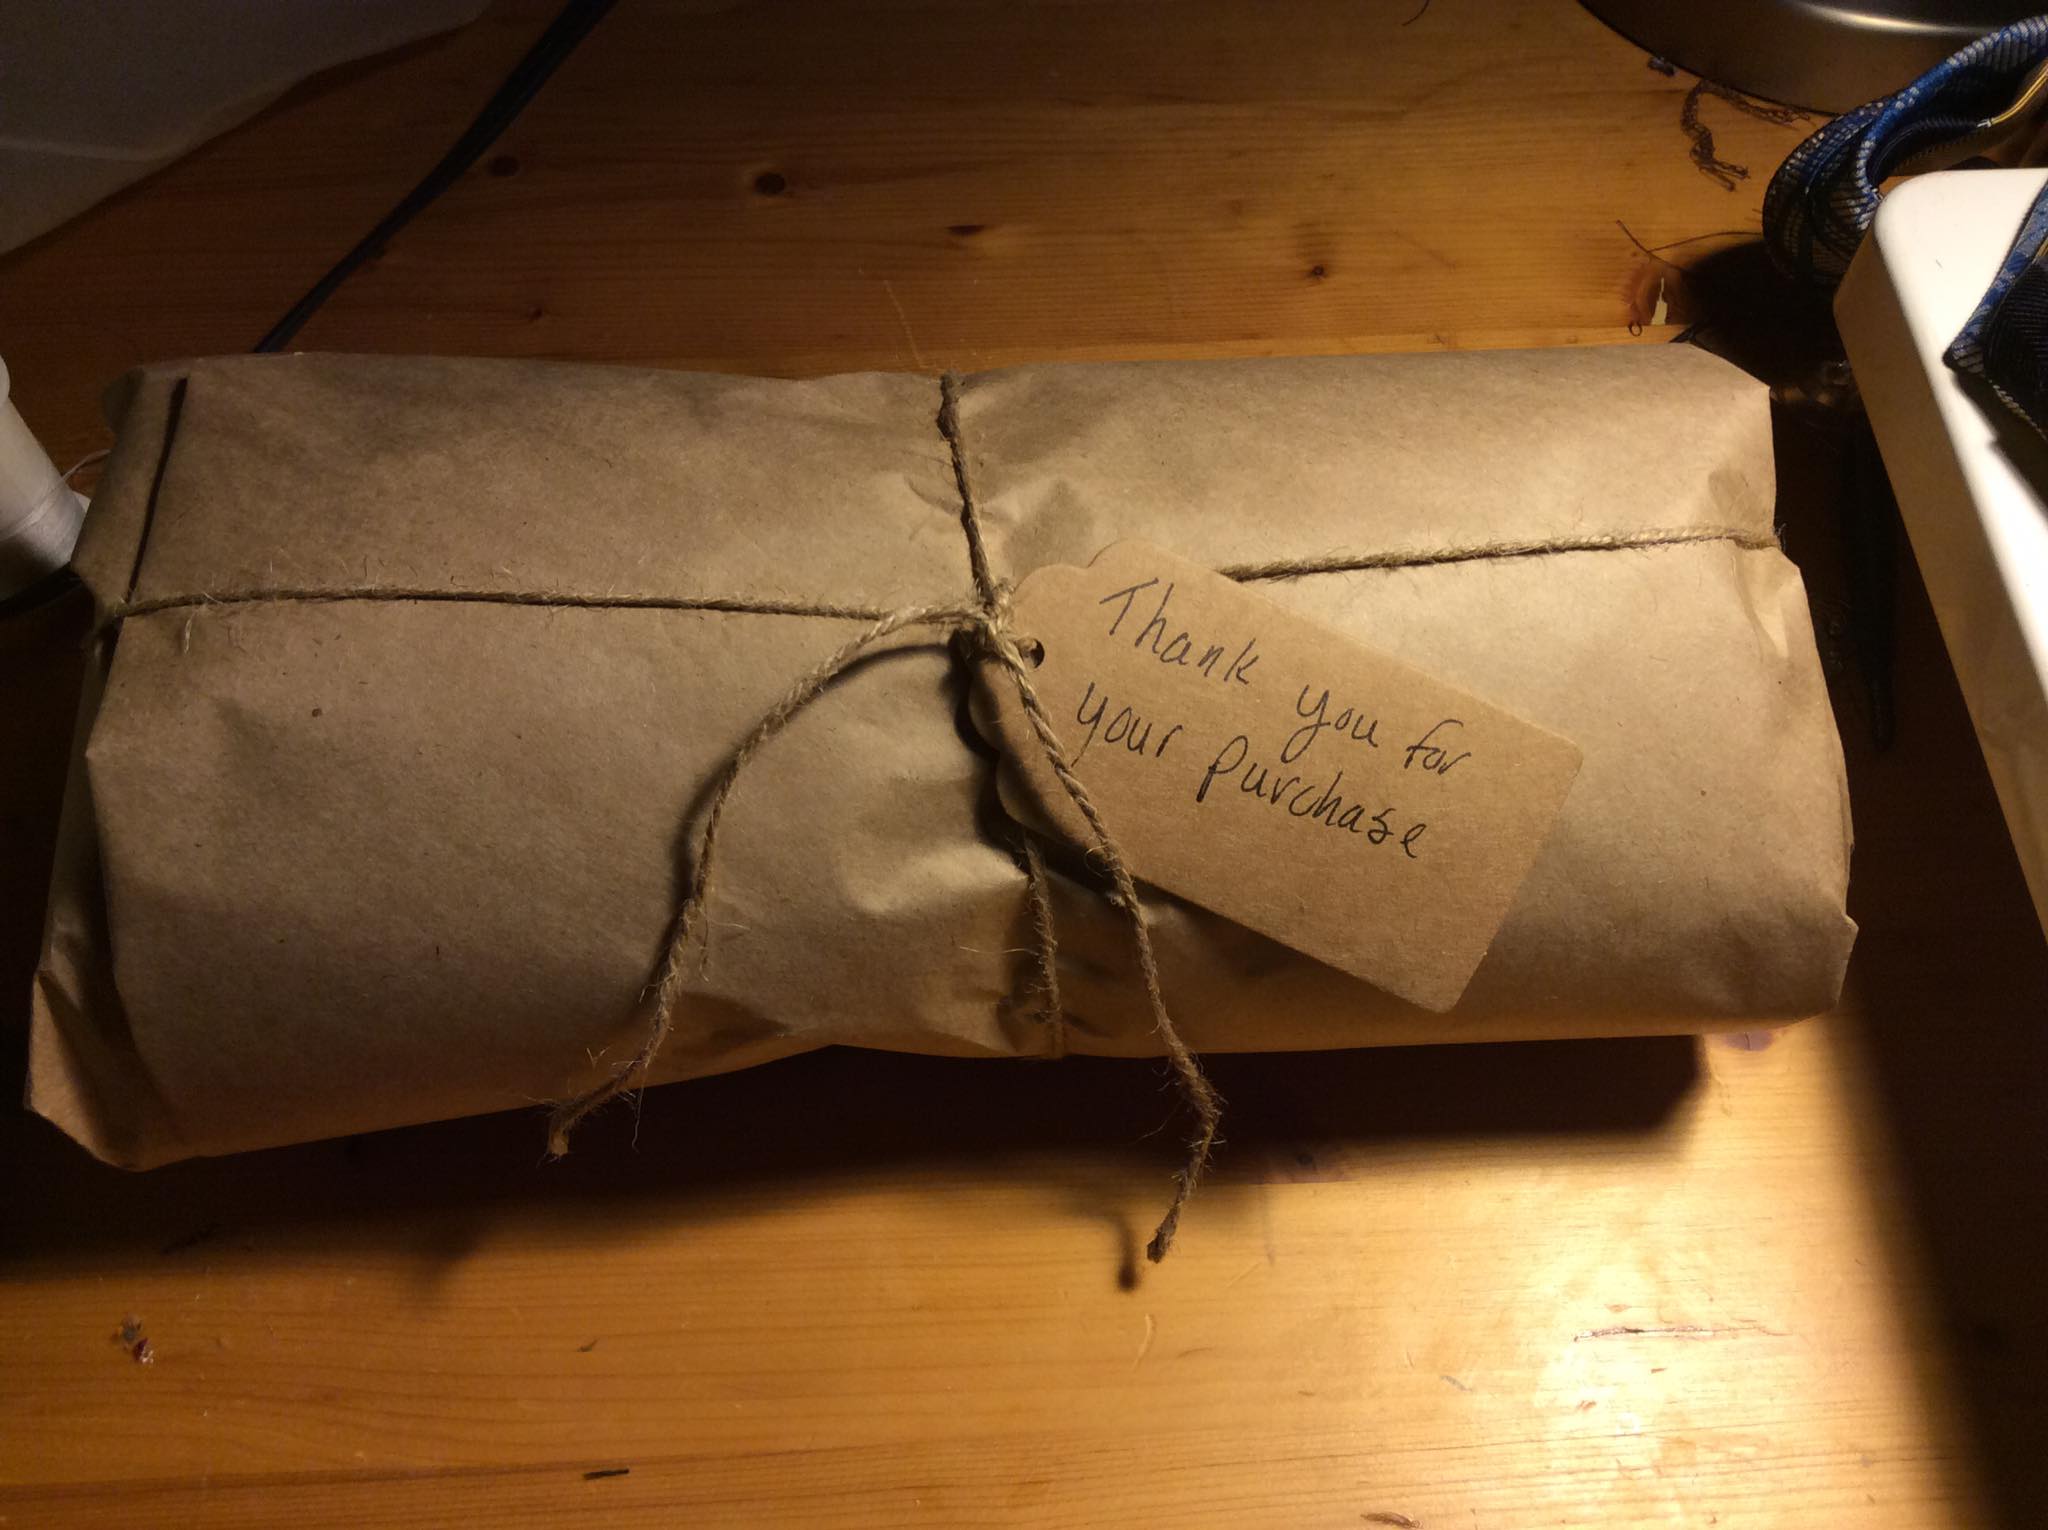 Thank you for
your purchase